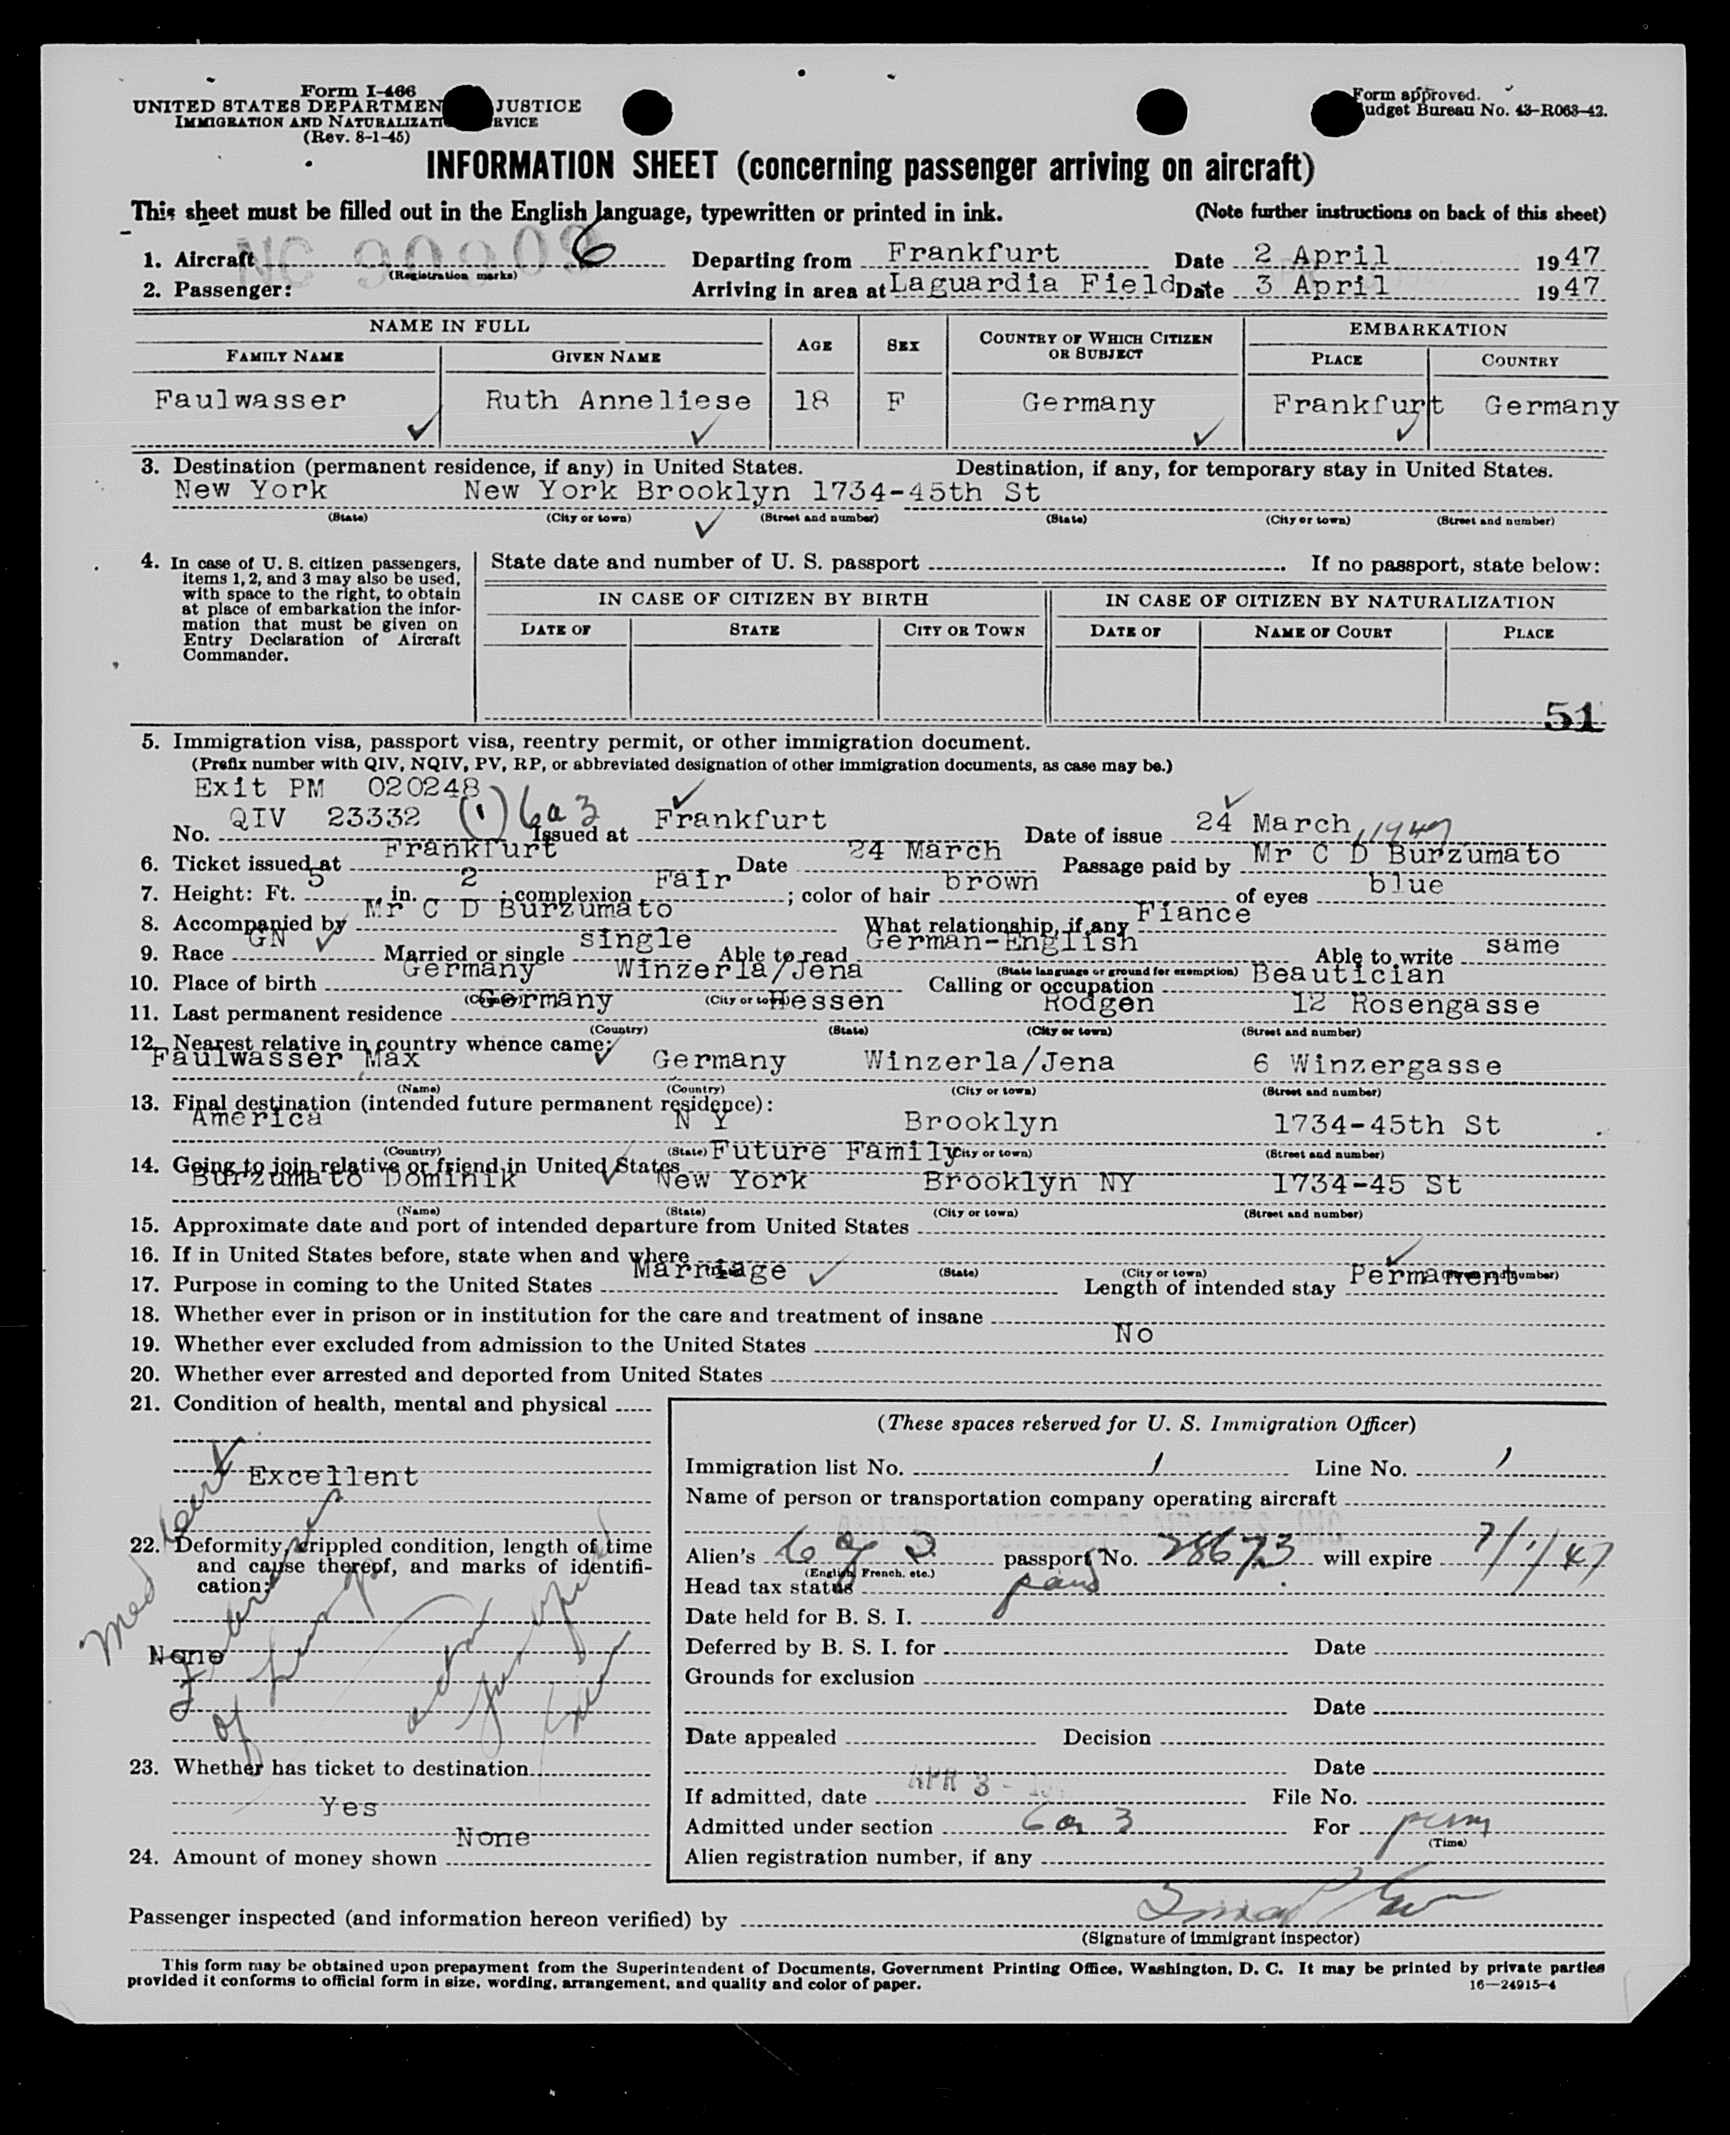 Form I-466
UNITED STATES DEPARTMEN JUSTICE
IMMIGRATION AND NATURALIZATI RVICE
(Rev. 8-1-45)
Form approved.
udget Bureau No. 43-R063-42.
INFORMATION SHEET (concerning passenger arriving on aircraft)
This sheet must be filled out in the English language, typewritten or printed in ink. (Note further instructions on back of this sheet)
1. Aircraft NC Departing from Frankfurt Date 2 April 1947
(Registration marks)
2. Passenger: Arriving in area at Laguardia Field Date 3 April 1947
NAME IN FULL AGE SEX COUNTRY OF WHICH CITIZEN OR SUBJECT EMBARKATION
FAMILY NAME GIVEN NAME PLACE COUNTRY
Faulwasser Ruth Anneliese 18 F Germany Frankfurt Germany
3. Destination (permanent residence, if any) in United States. Destination, if any, for temporary stay in United States.
New York New York Brooklyn 1734-45th St
(State) (City or town) (Street and number) (State) (City or town) (Street and number)
4. In case of U. S. citizen passengers, items 1, 2, and 3 may also be used, with space to the right, to obtain at place of embarkation the information that must be given on Entry Declaration of Aircraft Commander.
State date and number of U. S. passport If no passport, state below:
IN CASE OF CITIZEN BY BIRTH IN CASE OF CITIZEN BY NATURALIZATION
DATE OF STATE CITY OR TOWN DATE OF NAME OF COURT PLACE
51
5. Immigration visa, passport visa, reentry permit, or other immigration document.
(Prefix number with QIV, NQIV, PV, RP, or abbreviated designation of other immigration documents, as case may be.)
Exit PM 020248
No. QIV 23332 (1) 6a3 Issued at Frankfurt Date of issue 24 March, 1947
6. Ticket issued at Frankfurt Date 24 March Passage paid by Mr C D Burzumato
7. Height: Ft. 5, in. 2; complexion Fair; color of hair brown of eyes blue
8. Accompanied by Mr C D Burzumato What relationship, if any Fiance
9. Race GN Married or single single Able to read German-English Able to write same
(State language or ground for exemption)
10. Place of birth Germany Winzerla/Jena Calling or occupation Beautician
(Country) (City or town)
11. Last permanent residence Germany Hessen Rodgen 12 Rosengasse
(Country) (State) (City or town) (Street and number)
12. Nearest relative in country whence came:
Faulwasser Max Germany Winzerla/Jena 6 Winzergasse
(Name) (Country) (City or town) (Street and number)
13. Final destination (intended future permanent residence):
America N Y Brooklyn 1734-45th St
(Country) (State) (City or town) (Street and number)
14. Going to join relative or friend in United States Future Family
Burzumato Dominik New York Brooklyn NY 1734-45 St
(Name) (State) (City or town) (Street and number)
15. Approximate date and port of intended departure from United States
16. If in United States before, state when and where
(State) (City or town) (Street and number)
17. Purpose in coming to the United States Marriage Length of intended stay Permanent
18. Whether ever in prison or in institution for the care and treatment of insane
19. Whether ever excluded from admission to the United States No
20. Whether ever arrested and deported from United States
21. Condition of health, mental and physical
Excellent
22. Deformity, crippled condition, length of time
and cause thereof, and marks of identifi-
cation:
None
Med
23. Whether has ticket to destination
Yes
None
24. Amount of money shown
(These spaces reserved for U. S. Immigration Officer)
Immigration list No. 1 Line No. 1
Name of person or transportation company operating aircraft
Alien's 6 a 3 passport No. 28673 will expire 7/1/47
(English, French, etc.)
Head tax status paid
Date held for B. S. I.
Deferred by B. S. I. for Date
Grounds for exclusion
Date
Date appealed Decision
Date
If admitted, date APR 3 - File No.
Admitted under section 6 a 3 For perm
(Time)
Alien registration number, if any
Passenger inspected (and information hereon verified) by
(Signature of immigrant inspector)
This form may be obtained upon prepayment from the Superintendent of Documents, Government Printing Office, Washington, D. C. It may be printed by private parties
provided it conforms to official form in size, wording, arrangement, and quality and color of paper. 16—24915-4